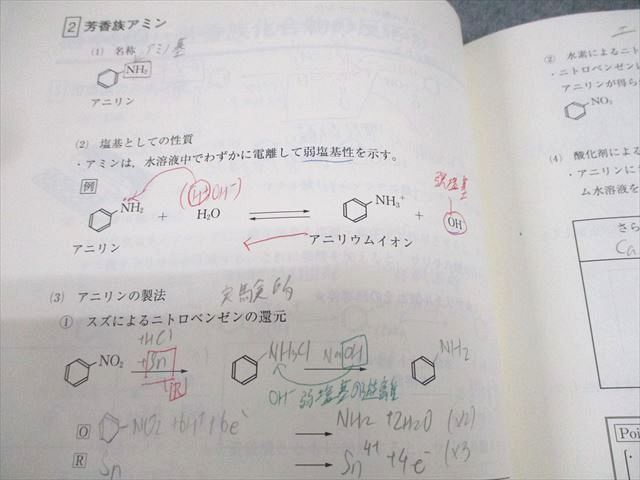 2 芳香族アミン
(1) 名称 アミノ基
NH₂
アニリン
(2) 塩基としての性質
・アミンは，水溶液中でわずかに電離して弱塩基性を示す。
例
NH₂ + H₂O ⇌ NH₃⁺ + OH⁻
(H⁺OH⁻)
弱塩基
アニリン
アニリウムイオン
(3) アニリンの製法 実験室的
① スズによるニトロベンゼンの還元
NO₂ +HCl +Sn (R) → NH₃Cl NaOH → NH₂
OH⁻ 弱塩基の遊離
O NO₂ +6H⁺+6e⁻ → NH₂ +2H₂O (×2)
R Sn → Sn⁴⁺ +4e⁻ (×3
② 水素によるニト
・ニトロベンゼンに
アニリンが得ら
NO₂
(4) 酸化剤による
・アニリンに
ム水溶液を
さら
Ca
Poi